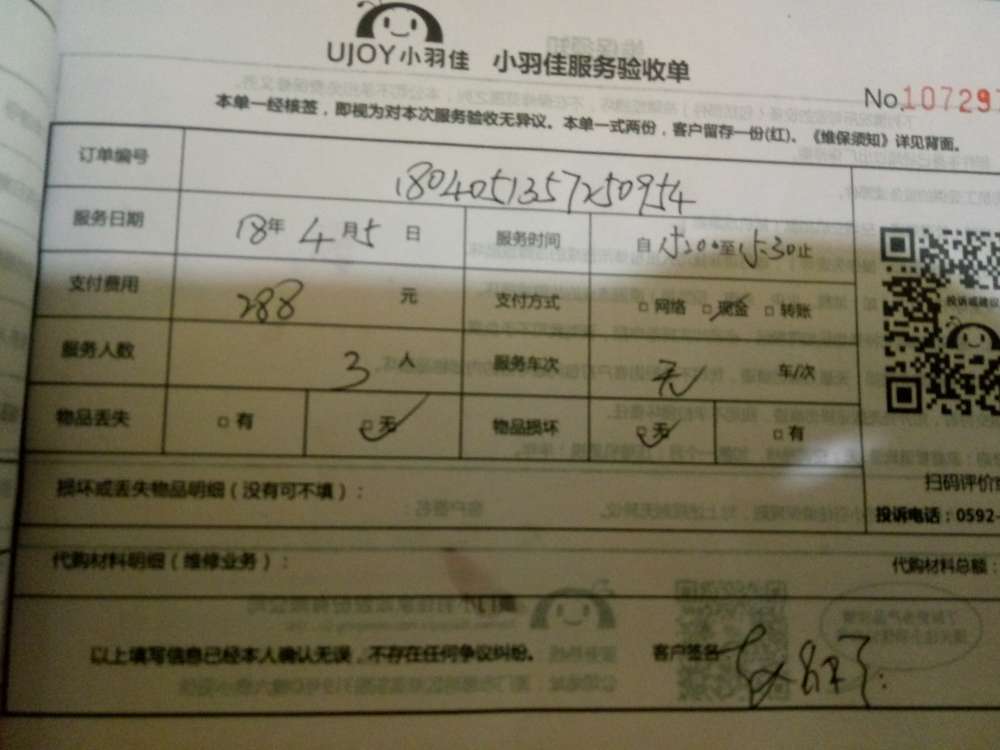 UJOY小羽佳 小羽佳服务验收单
No.107297
本单一经核签，即视为对本次服务验收无异议。本单一式两份，客户留存一份(红)。《维保须知》详见背面。
订单编号 1804051357250954
服务日期 18年 4月5日 服务时间 自15:20至15:30止
支付费用 288 元 支付方式 □网络 □现金 □转账
投诉或建议
服务人数 3 人 服务车次 无 车/次
物品丢失 □有 □无 物品损坏 □无 □有
扫码评价
损坏或丢失物品明细（没有可不填）：
投诉电话：0592-
代购材料明细（维修业务）： 代购材料总额：
以上填写信息已经本人确认无误，不存在任何争议纠纷。 客户签名